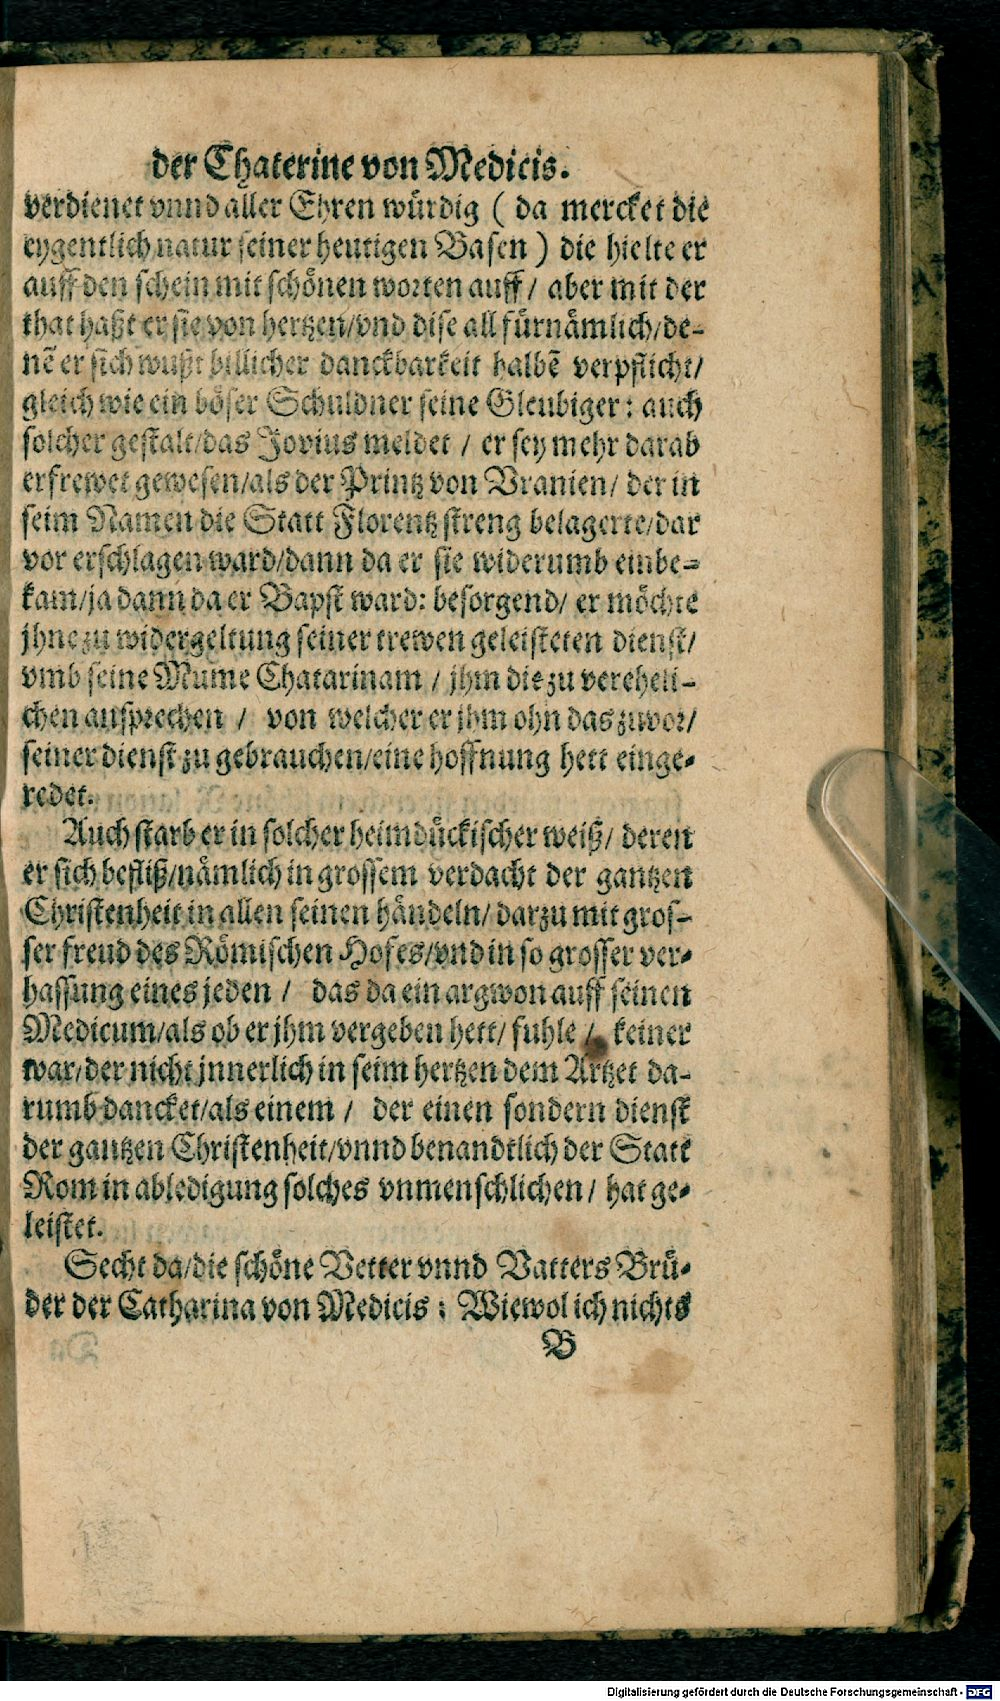 der Chaterine von Medicis.
verdienet vnnd aller Ehren würdig ( da mercket die
eygentlich natur seiner heutigen Basen ) die hielte er
auff den schein mit schönen worten auff / aber mit der
that haßt er sie von hertzen/vnd dise all fürnämlich/de-
nē er sich wußt billicher danckbarkeit halbē verpflicht/
gleich wie ein böser Schuldner seine Gleubiger: auch
solcher gestalt/das Jovius meldet / er sey mehr darab
erfrewet gewesen/als der Printz von Vranien/ der in
seim Namen die Statt Florentz streng belagerte/dar
vor erschlagen ward/dann da er sie widerumb einbe-
kam/ja dann da er Bapst ward: besorgend/ er möchte
jhne zu widergeltung seiner trewen geleisteten dienst/
vmb seine Mume Chatarinam / jhm die zu vereheli-
chen ansprechen / von welcher er jhm ohn das zuvor/
seiner dienst zu gebrauchen/eine hoffnung hett einge-
redet.
Auch starb er in solcher heimdückischer weiß/ deren
er sich befliß/nämlich in grossem verdacht der gantzen
Christenheit in allen seinen händeln/ darzu mit gros-
ser freud des Römischen Hofes/vnd in so grosser ver-
hassung eines jeden / das da ein argwon auff seinen
Medicum/als ob er jhm vergeben hett/ fuhle / keiner
war/der nicht jnnerlich in seim hertzen dem Artzet da-
rumb dancket/als einem / der einen sondern dienst
der gantzen Christenheit/vnnd benandtlich der Statt
Rom in abledigung solches vnmenschlichen/ hat ge-
leistet.
Secht da/die schöne Vetter vnnd Vatters Brü-
der der Catharina von Medicis : Wiewol ich nichts
B
Digitalisierung gefördert durch die Deutsche Forschungsgemeinschaft - DFG